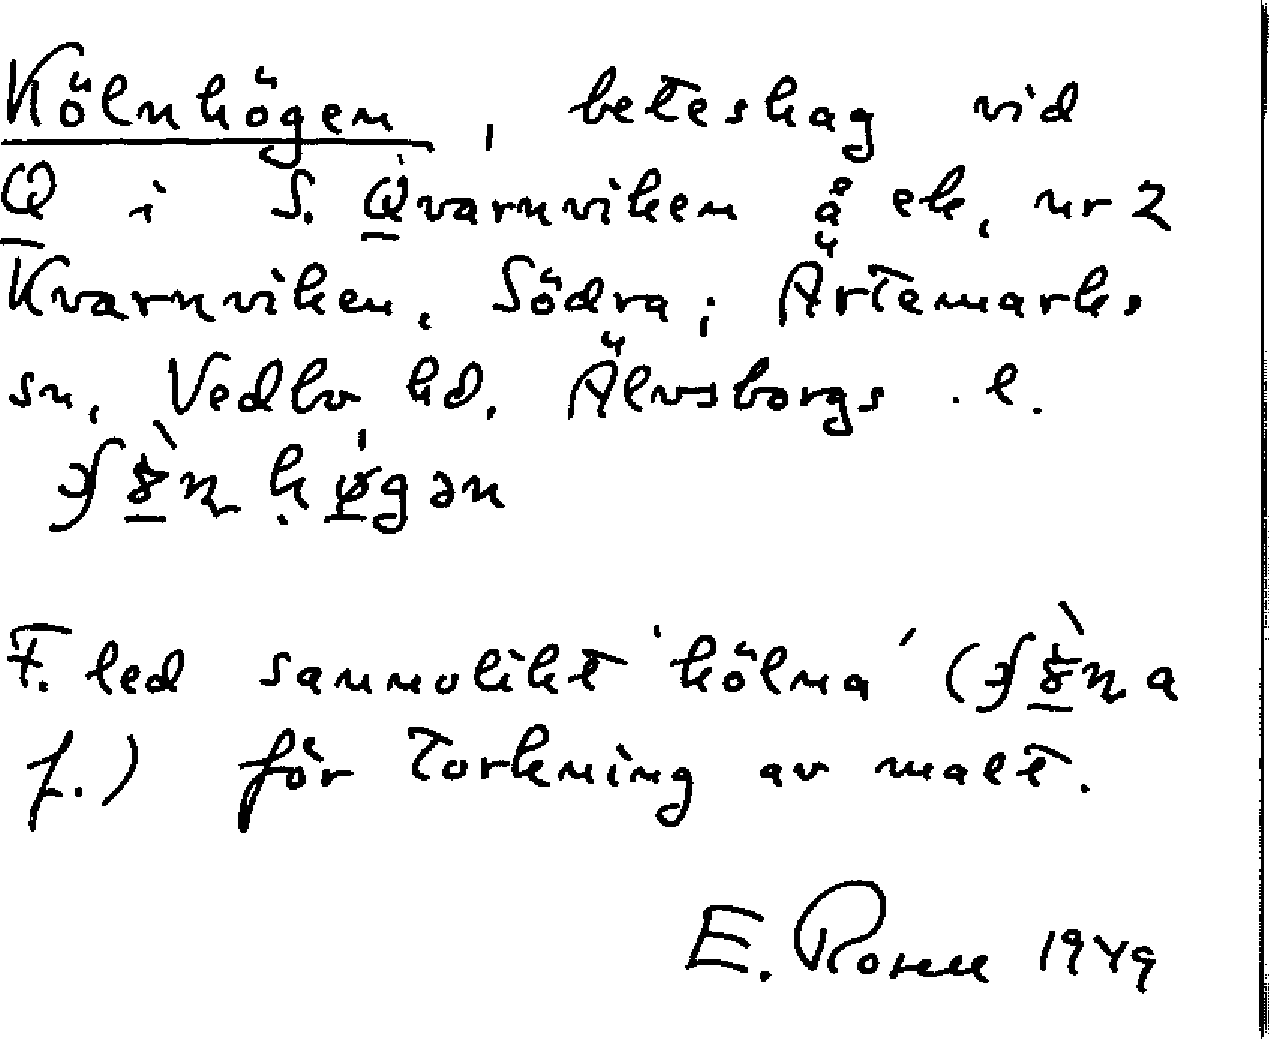 Kölnhögen, beteshag vid
Q i S. Qvarnviken å ek. nr 2
Kvarnviken, Södra; Ärtemarks
sn, Vedbo hd, Älvsborgs l.
högən
F. led sannolikt 'kölna' (
f.) för torkning av malt.
E. Rosell 1949